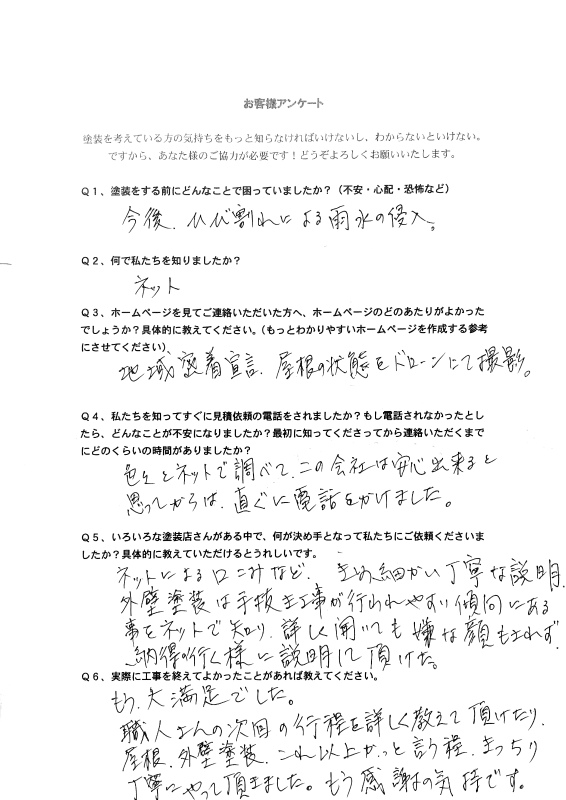 お客様アンケート
塗装を考えている方の気持ちをもっと知らなければいけないし、わからないといけない。
ですから、あなた様のご協力が必要です！どうぞよろしくお願いいたします。
Ｑ１、塗装をする前にどんなことで困っていましたか？（不安・心配・恐怖など）
今後、ひび割れによる雨水の侵入。
Ｑ２、何で私たちを知りましたか？
ネット
Ｑ３、ホームページを見てご連絡いただいた方へ、ホームページのどのあたりがよかった
でしょうか？具体的に教えてください。（もっとわかりやすいホームページを作成する参考
にさせてください）
地域密着宣言、屋根の状態をドローンにて撮影。
Ｑ４、私たちを知ってすぐに見積依頼の電話をされましたか？もし電話されなかったとし
たら、どんなことが不安になりましたか？最初に知ってくださってから連絡いただくまで
にどのくらいの時間がありましたか？
色々とネットで調べて、この会社は安心出来ると
思ってからは、直ぐに電話をかけました。
Ｑ５、いろいろな塗装店さんがある中で、何が決め手となって私たちにご依頼くださいま
したか？具体的に教えていただけるとうれしいです。
ネットによる口こみなど、きめ細かい丁寧な説明、
外壁塗装は手抜き工事が行われやすい傾向にある
事をネットで知り、詳しく聞いても嫌な顔もせず、
納得の行く様に説明して頂けた。
Ｑ６、実際に工事を終えてよかったことがあれば教えてください。
もう、大満足でした。
職人さんの次回の行程を詳しく教えて頂けたり、
屋根、外壁塗装、これ以上かっと言う程、きっちり
丁寧にやって頂きました。もう感謝の気持です。